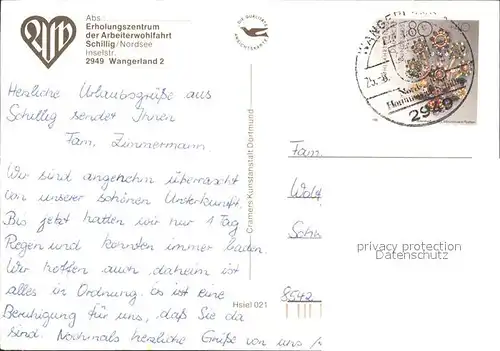 Abs.
Erholungszentrum
der Arbeiterwohlfahrt
Schillig/Nordsee
Inselstr.
2949 Wangerland 2
DIE QUALITÄTS
ANSICHTSKARTE
WANGERL
80
25.-8.
Nords
2949
Herzliche Urlaubsgrüße aus
Schillig sendet Ihnen
Fam. Zimmermann.
Wir sind angenehm überrascht
von unserer schönen Unterkunft.
Bis jetzt hatten wir nur 1 Tag
Regen und konnten immer baden.
Wir hoffen auch, daheim ist
alles in Ordnung. Es ist eine
Beruhigung für uns, daß Sie da
sind. Nochmals herzliche Grüße von uns
Cramers Kunstanstalt Dortmund
Hsiel 021
Fam.
Wolf
Schw
8542
privacy protection
Datenschutz